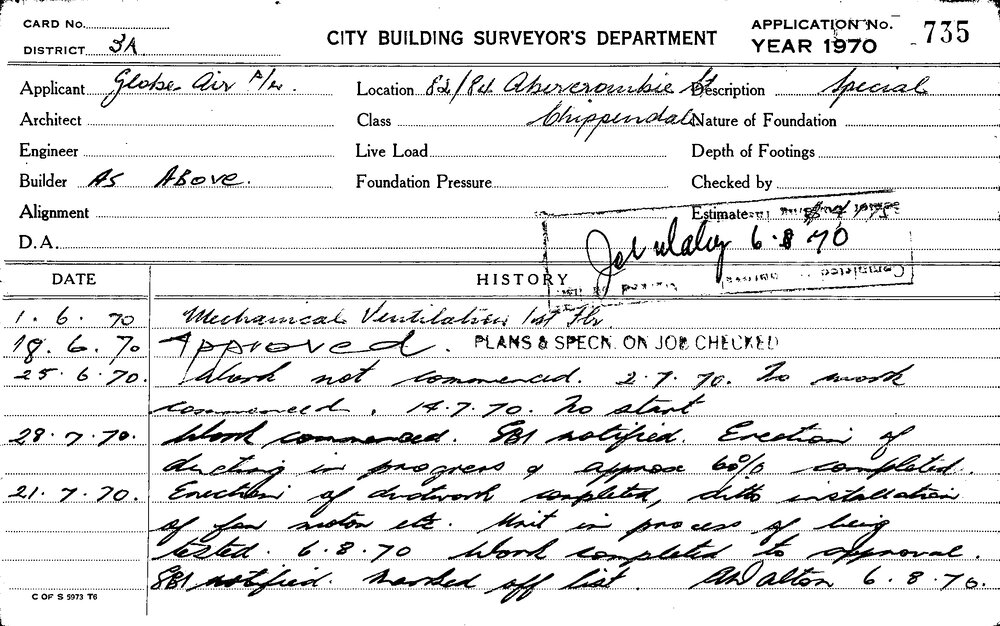 CARD No.
DISTRICT 3A
CITY BUILDING SURVEYOR'S DEPARTMENT
APPLICATION No. 735
YEAR 1970
Applicant Globe Air P/L. Location 82/84 Abercrombie St Description Special
Architect Class Chippendale Nature of Foundation
Engineer Live Load Depth of Footings
Builder As Above. Foundation Pressure Checked by
Alignment Estimate
D.A. 6.8 70
DATE HISTORY
1.6.70 Mechanical Ventilation 1st Flr
18.6.70 Approved. PLANS & SPECN. ON JOB CHECKED
25.6.70. Work not commenced. 2.7.70. No work
commenced. 14.7.70. No start
28.7.70. Work commenced. SBI notified. Erection of
ducting in progress & approx 60% completed.
21.7.70. Erection of ductwork completed, ditto installation
of fan motor etc. Unit in process of being
tested. 6.8.70 Work completed to approval.
SBI notified. Marked off list. AW Dalton 6.8.70.
C OF S 5973 T6